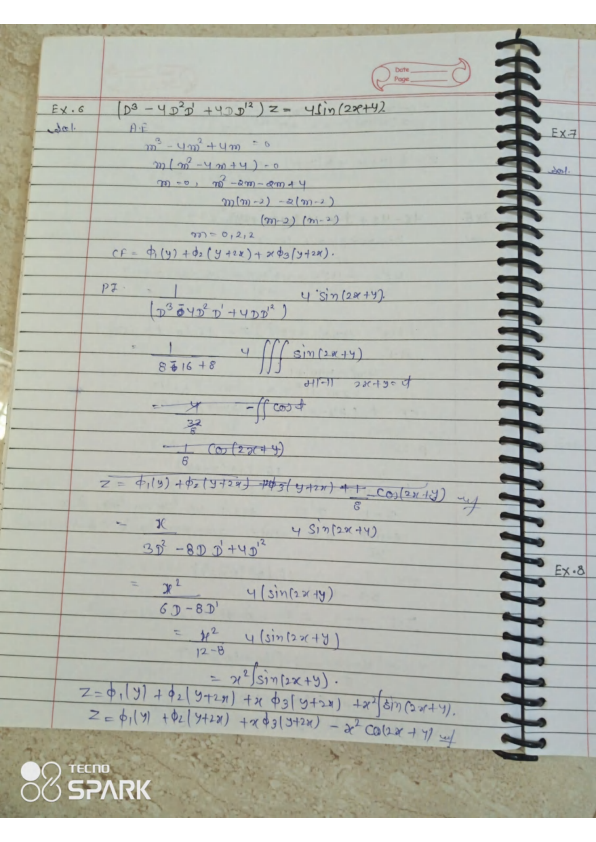 Date
Page
Ex.6 (D³ - 4D²D' + 4DD'²) Z = 4sin(2x+y)
Sol. AE
m³ - 4m² + 4m = 0
m(m² - 4m + 4) = 0
m = 0, m² - 2m - 2m + 4
m(m-2) - 2(m-2)
(m-2) (m-2)
m = 0, 2, 2
CF = ϕ₁(y) + ϕ₂(y+2x) + xϕ₃(y+2x).
PI. 1 4 sin(2x+y)
(D³ - 4D²D' + 4DD'²)
= 1 4 ∭ sin(2x+y)
8 - 16 + 8
माना 2x+y = ϕ
= 4 -∬ cos ϕ
32
8
1 cos(2x+y)
8
Z = ϕ₁(y) + ϕ₂(y+2x) + ϕ₃(y+2x) + 1 cos(2x+y)
8
= x 4 sin(2x+y)
3D² - 8DD' + 4D'²
= x² 4(sin(2x+y)
6D - 8D'
= x² 4(sin(2x+y)
12-8
= x² ∫sin(2x+y).
Z = ϕ₁(y) + ϕ₂(y+2x) + xϕ₃(y+2x) + x²∫sin(2x+y).
Z = ϕ₁(y) + ϕ₂(y+2x) + xϕ₃(y+2x) - x² cos(2x+y)
Ex.7
Sol.
Ex.8
TECNO
SPARK